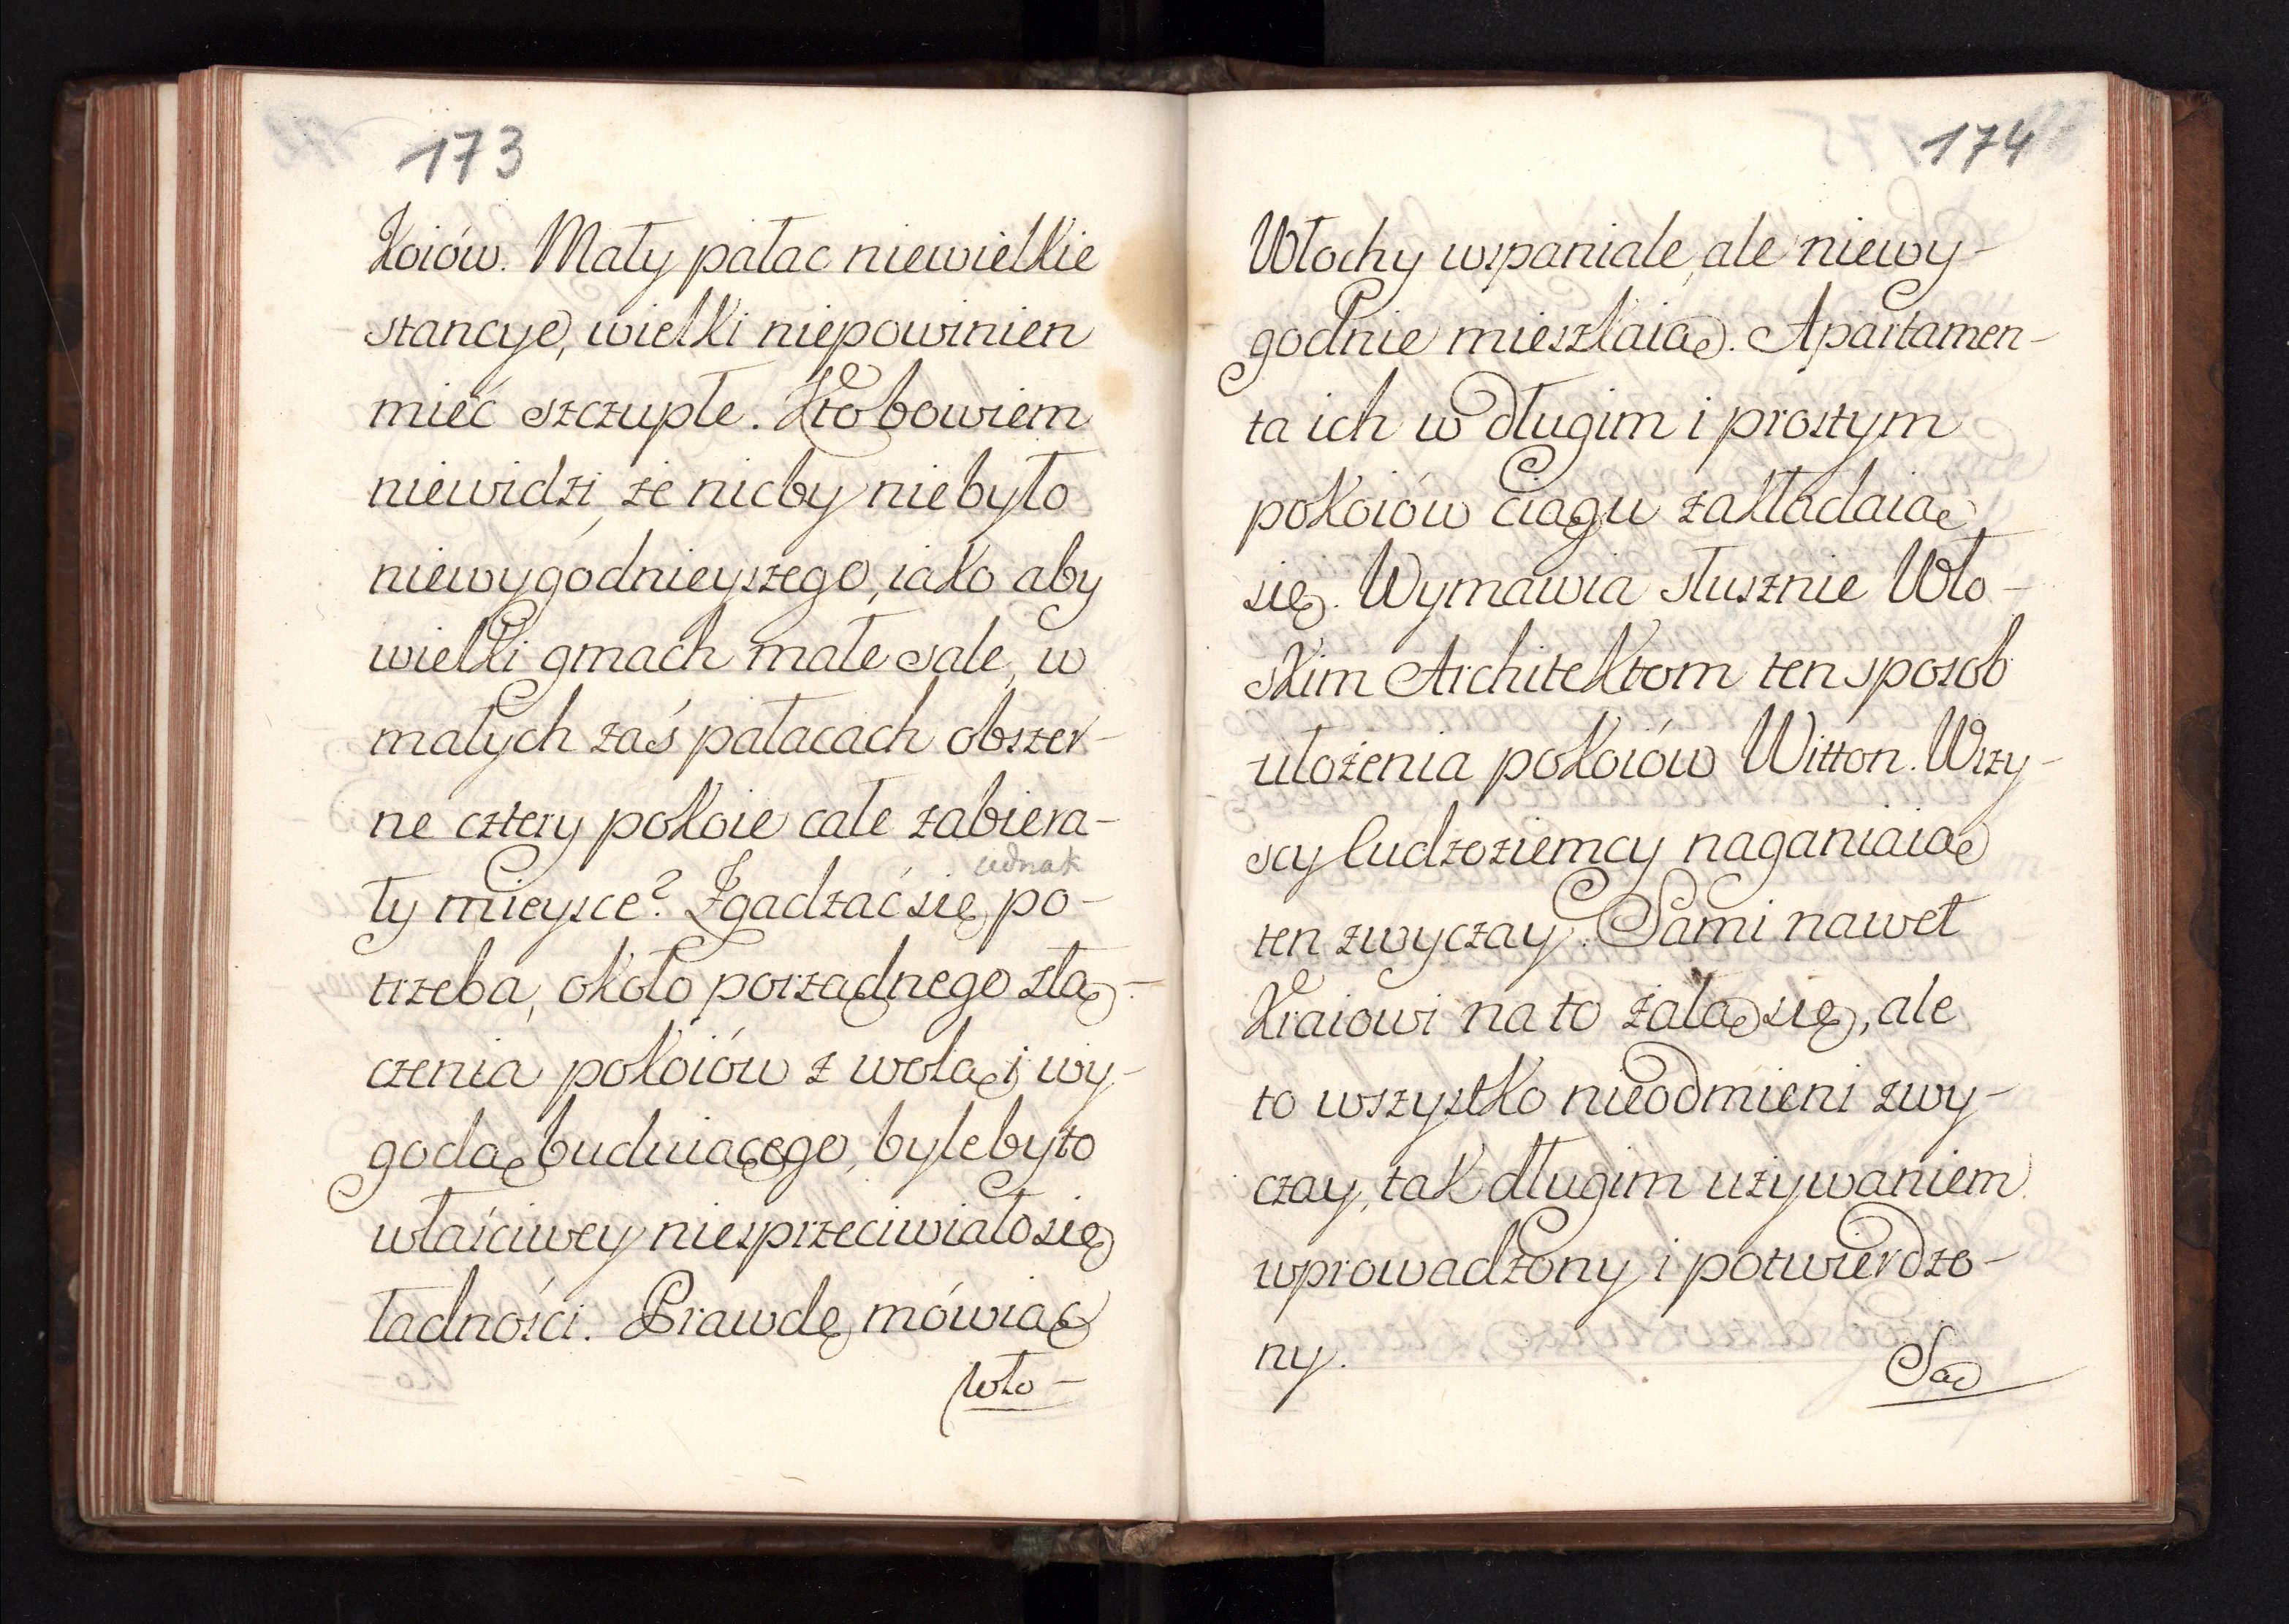 173
koiów. Mały pałac niewielkie
stancye, wielki niepowinien
mieć szczupłe. Kto bowiem
niewidzi, że nicby niebyło
niewygodnieyszego, iako aby
wielki gmach małe sale, w
małych zaś pałacach obszer-
ne cztery pokoie całe zabiera-
iednak
ły mieysce? Zgadzać się po-
trzeba, około porządnego złą-
czenia pokoiów z wolą i wy-
godą buduiącego, byle było
właściwey niesprzeciwiało się
ładności. Prawdę mówiąc
Wło-
174
Włochy wspaniale, ale niewy-
godnie mieszkaią. Apartamen-
ta ich w długim i prostym
pokoiów ciągu zakładaią
się. Wymawia słusznie Wło-
skim Architektom ten sposob
ułożenia pokoiów Witton. Wszy-
scy ludzoziemcy naganiaią
ten zwyczay. Sami nawet
Kraiowi na to żalą się, ale
to wszystko nieodmieni zwy-
czay, tak długim używaniem
wprowadzony i potwierdzo-
ny.
Są